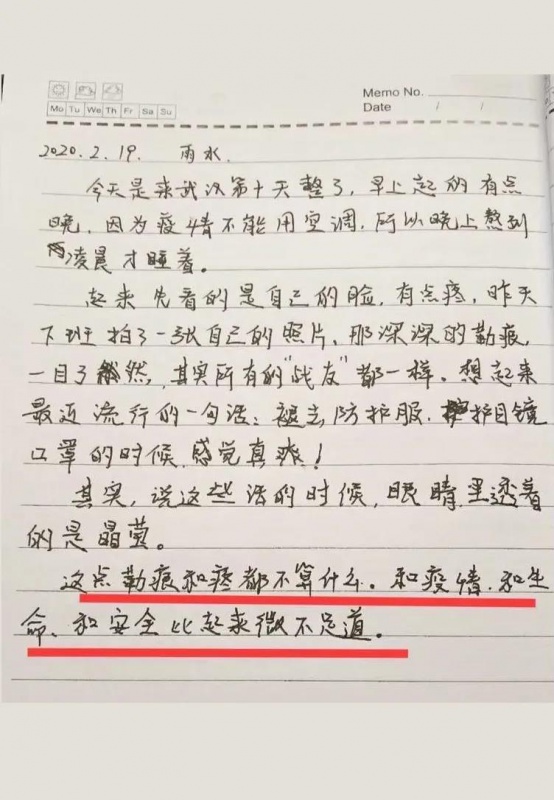 Memo No.
Mo Tu We Th Fr Sa Su
Date / /
2020.2.19. 雨水.
今天是来武汉第十天整了,早上起的有点
晚,因为疫情不能用空调,所以晚上熬到
凌晨才睡着。
起来先看的是自己的脸,有点疼,昨天
下班拍了一张自己的照片,那深深的勒痕,
一目了然,其实所有的"战友"都一样。想起来
最近流行的一句话:褪去防护服.护目镜
口罩的时候,感觉真爽!
其实,说这些话的时候,眼睛里透着
的是晶莹。
这点勒痕和疼都不算什么。和疫情.和生
命、和安全比起来微不足道。